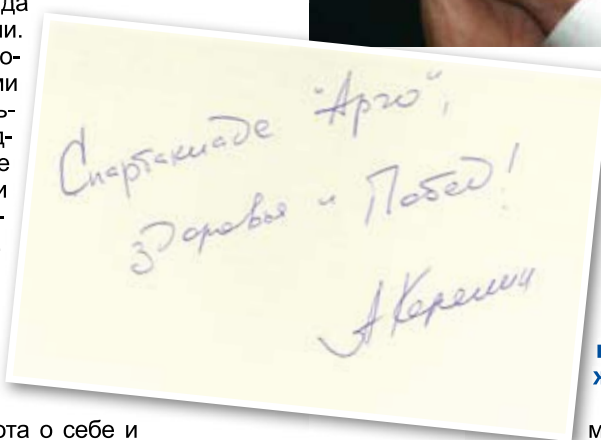 да
Спартакиаде "Арго",
здоровья и Побед!
А Карелин
ота о себе и